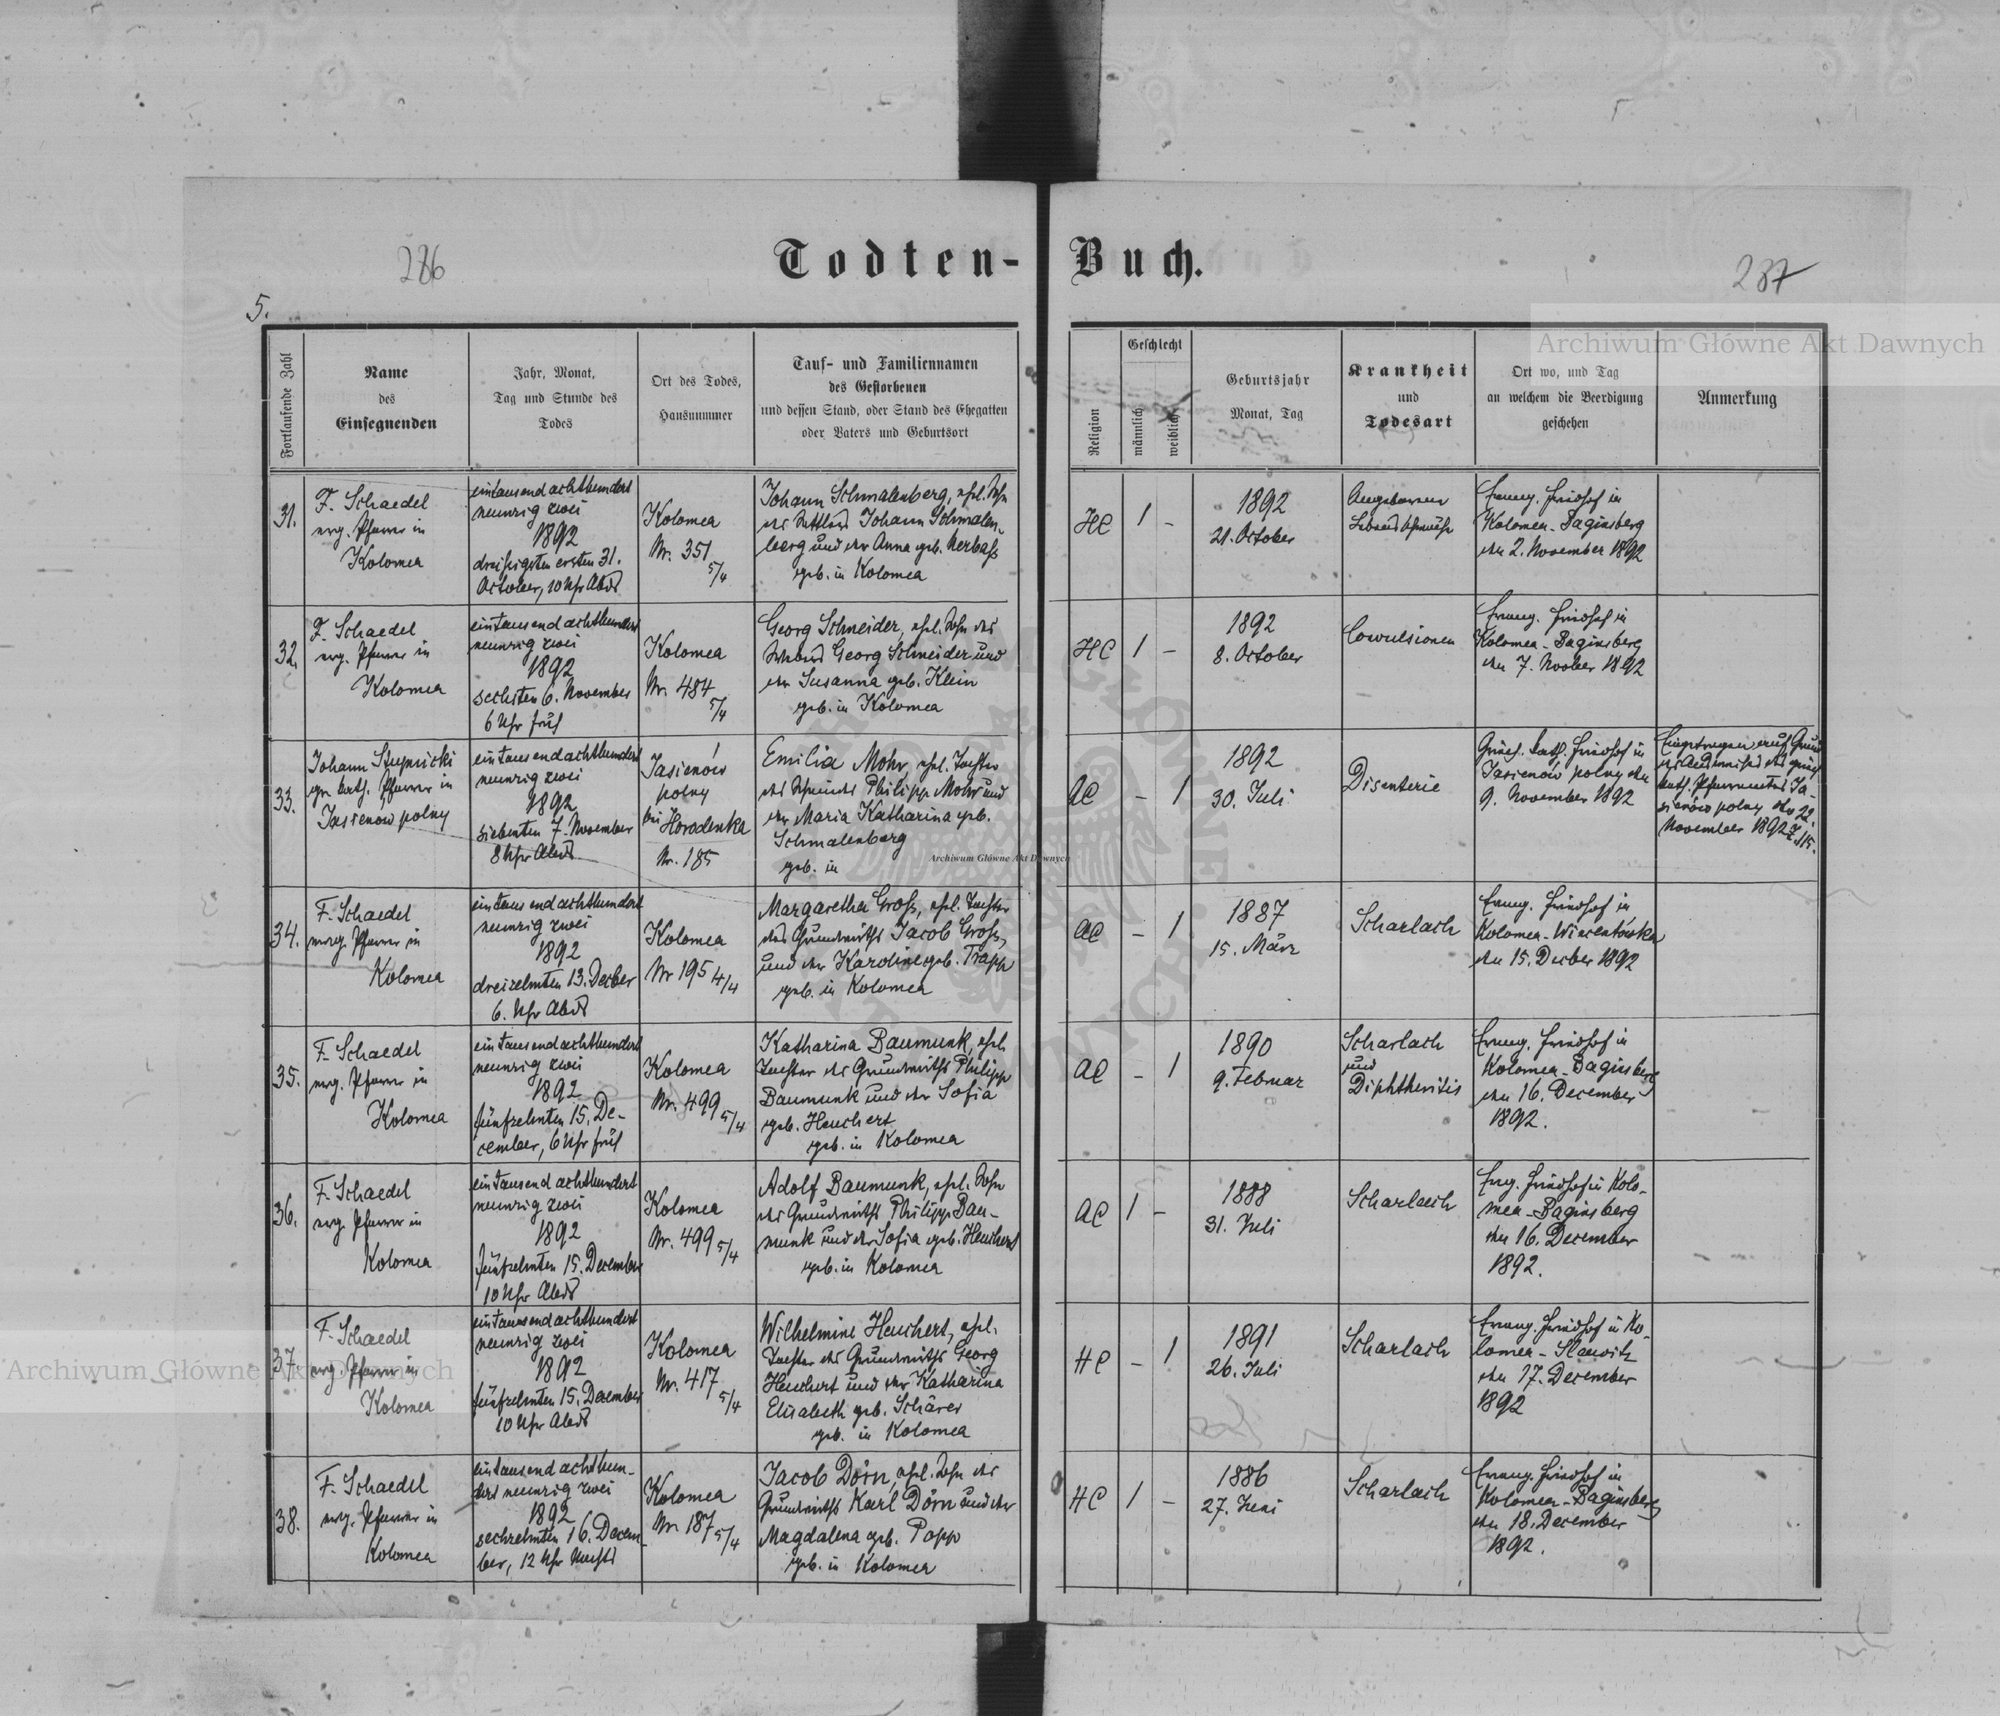 286
Todten-Buch.
237
5.
Archiwum Główne Akt Dawnych
Fortlaufende Zahl
Name
des
Einsegnenden
Jahr, Monat,
Tag und Stunde des
Todes
Ort des Todes,
Hausnummer
Tauf- und Familiennamen
des Gestorbenen
und dessen Stand, oder Stand des Ehegatten
oder Vaters und Geburtsort
Religion
Geschlecht
männlich
weiblich
Geburtsjahr
Monat, Tag
Krankheit
und
Todesart
Ort wo, und Tag
an welchem die Beerdigung
geschehen
Anmerkung
31.
F. Schaedel
evg. Pfarrer in
Kolomea
eintausend achthundert
neunzig zwei
1892
dreißigsten ersten 31.
October, 10 Uhr Abds
Kolomea
Nr. 351
5/4
Johann Schmalenberg, ehl. Sohn
des Johann Schmalen-
berg und der Anna geb. Nerbaß
geb. in Kolomea
HC
1
-
1892
21. October
Angeborene
Lebensschwäche
Evang. Friedhof in
Kolomea-Baginsberg
den 2. November 1892
32.
F. Schaedel
evg. Pfarrer in
Kolomea
eintausend achthundert
neunzig zwei
1892
sechsten 6. November
6 Uhr früh
Kolomea
Nr. 484
5/4
Georg Schneider, ehl. Sohn des
Georg Schneider und
der Susanna geb. Klein
geb. in Kolomea
HC
1
-
1892
8. October
Convulsionen
Evang. Friedhof in
Kolomea-Baginsberg
den 7. Novber 1892
33.
Johann Stupnicki
gr. kath. Pfarrer in
Jasienow polny
eintausend achthundert
neunzig zwei
1892
siebenten 7. November
8 Uhr Abds
Jasienów
polny
bei Horodenka
Nr. 185
Emilia Mohr, ehl. Tochter
des Philipp Mohr und
der Maria Katharina geb.
Schmalenberg
geb. in
AC
-
1
1892
30. Juli
Disenterie
Griech. kath. Friedhof in
Jasienów polny den
9. November 1892
Eingetragen auf Grund
des des griech.
kath. Pfarramtes Ja-
sienów polny, dto 22.
November 1892 Z 115.
34.
F. Schaedel
evg. Pfarrer in
Kolomea
eintausend achthundert
neunzig zwei
1892
dreizehnten 13. Decber
6. Uhr Abds
Kolomea
Nr 195 4/4
Margaretha Groß, ehl. Tochter
des Grundwirths Jacob Groß,
und der Karoline geb. Trapp
geb. in Kolomea
AC
-
1
1887
15. März
Scharlach
Evang. Friedhof in
Kolomea-Wincentówka
den 15. Decber 1892
35.
F. Schaedel
evg. Pfarrer in
Kolomea
eintausend achthundert
neunzig zwei
1892
fünfzehnten 15. De-
cember, 6 Uhr früh
Kolomea
Nr. 499 5/4
Katharina Baumunk, ehl.
Tochter des Grundwirths Philipp
Baumunk und der Sofia
geb. Heuchert
geb. in Kolomea
AC
-
1
1890
9. Februar
Scharlach
und
Diphtheritis
Evang. Friedhof in
Kolomea-Baginsberg
den 16. December
1892.
36.
F. Schaedel
evg. Pfarrer in
Kolomea
eintausend achthundert
neunzig zwei
1892
fünfzehnten 15. December
10 Uhr Abds
Kolomea
Nr. 499 5/4
Adolf Baumunk, ehl. Sohn
des Grundwirths Philipp Bau-
munk und der Sofia geb. Heuchert
geb. in Kolomea
AC
1
-
1888
31. Juli
Scharlach
Evg. Friedhof in Kolo-
mea-Baginsberg
den 16. December
1892.
37.
F. Schaedel
evg. Pfarrer in
Kolomea
eintausend achthundert
neunzig zwei
1892
fünfzehnten 15. December
10 Uhr Abds
Kolomea
Nr. 417
5/4
Wilhelmine Heuchert, ehl.
Tochter des Grundwirths Georg
Heuchert und der Katharina
Elisabeth geb. Schärer
geb. in Kolomea
HC
-
1
1891
26. Juli
Scharlach
Evang. Friedhof in Ko-
lomea-Slawitz
den 17. December
1892
38.
F. Schaedel
evg. Pfarrer in
Kolomea
eintausend achthun-
dert neunzig zwei
1892
sechzehnten 16. Decem-
ber, 12 Uhr Nachts
Kolomea
Nr 187 5/4
Jacob Dörn, ehl. Sohn des
Grundwirths Karl Dörn und der
Magdalena geb. Popp
geb. in Kolomea
HC
1
-
1886
27. Juni
Scharlach
Evang. Friedhof in
Kolomea-Baginsberg
den 18. December
1892.
Archiwum Główne Akt Dawnych
Archiwum Główne Akt Dawnych